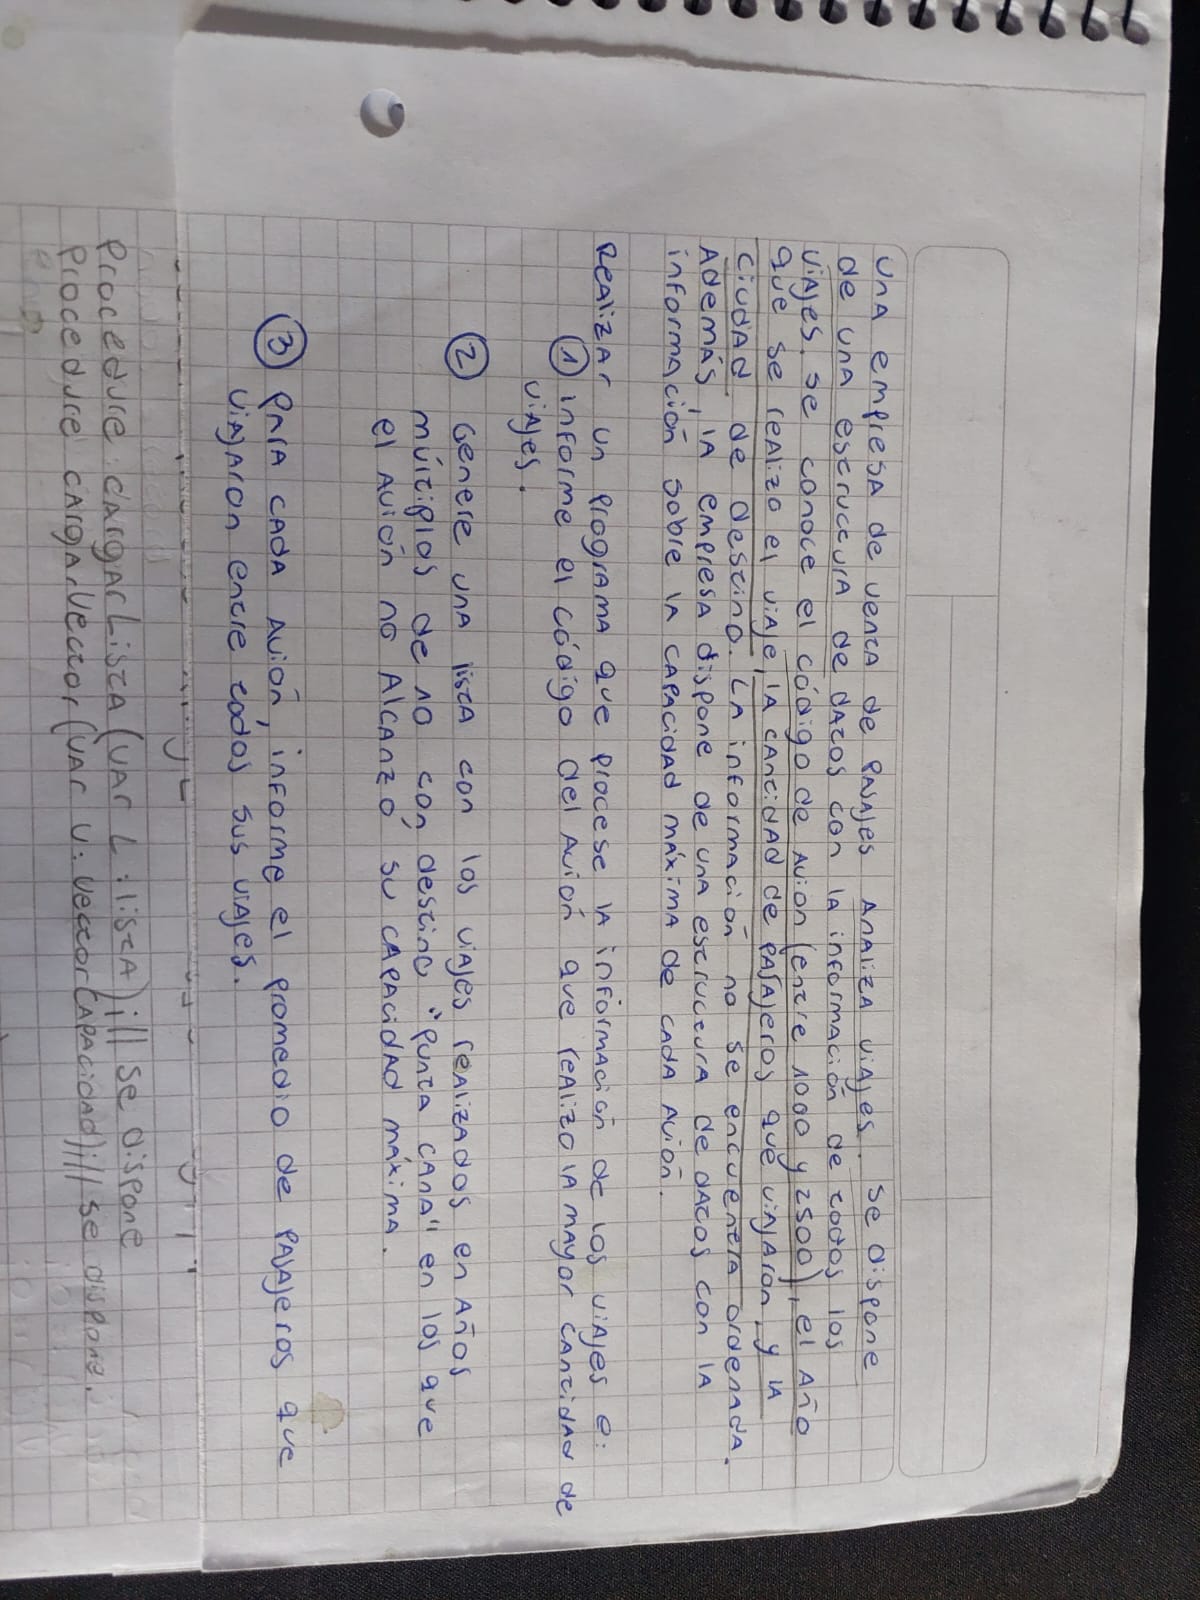 UNA empresA de ventA de pasajes ANALizA viAjes. Se dispone
de unA estructurA de datos con la información de todos los
viajes. se conoce el código de avion (entre 1000 y 2500), el Año
que se realizo el viaje, la cantidad de pasajeros que viajaron, y la
ciudad de destino. La informacion no se encuentra ordenada.
Además, la empresa dispone de una estructura de datos con la
información sobre la capacidad máxima de cada avión.
Realizar un programa que procese la información de los viajes e:
① informe el código del avión que realizo la mayor cantidad de
viajes.
② Genere una lista con los viajes realizados en años
múltiplos de 10 con destino "Punta Cana" en los que
el avión no alcanzó su capacidad máxima.
③ Para cada avión, informe el promedio de pasajeros que
viajaron entre todos sus viajes.
Procedure cargarLista (var L: lista); // se dispone
Procedure cargarVector (var v: vectorCapacidad); // se dispone.